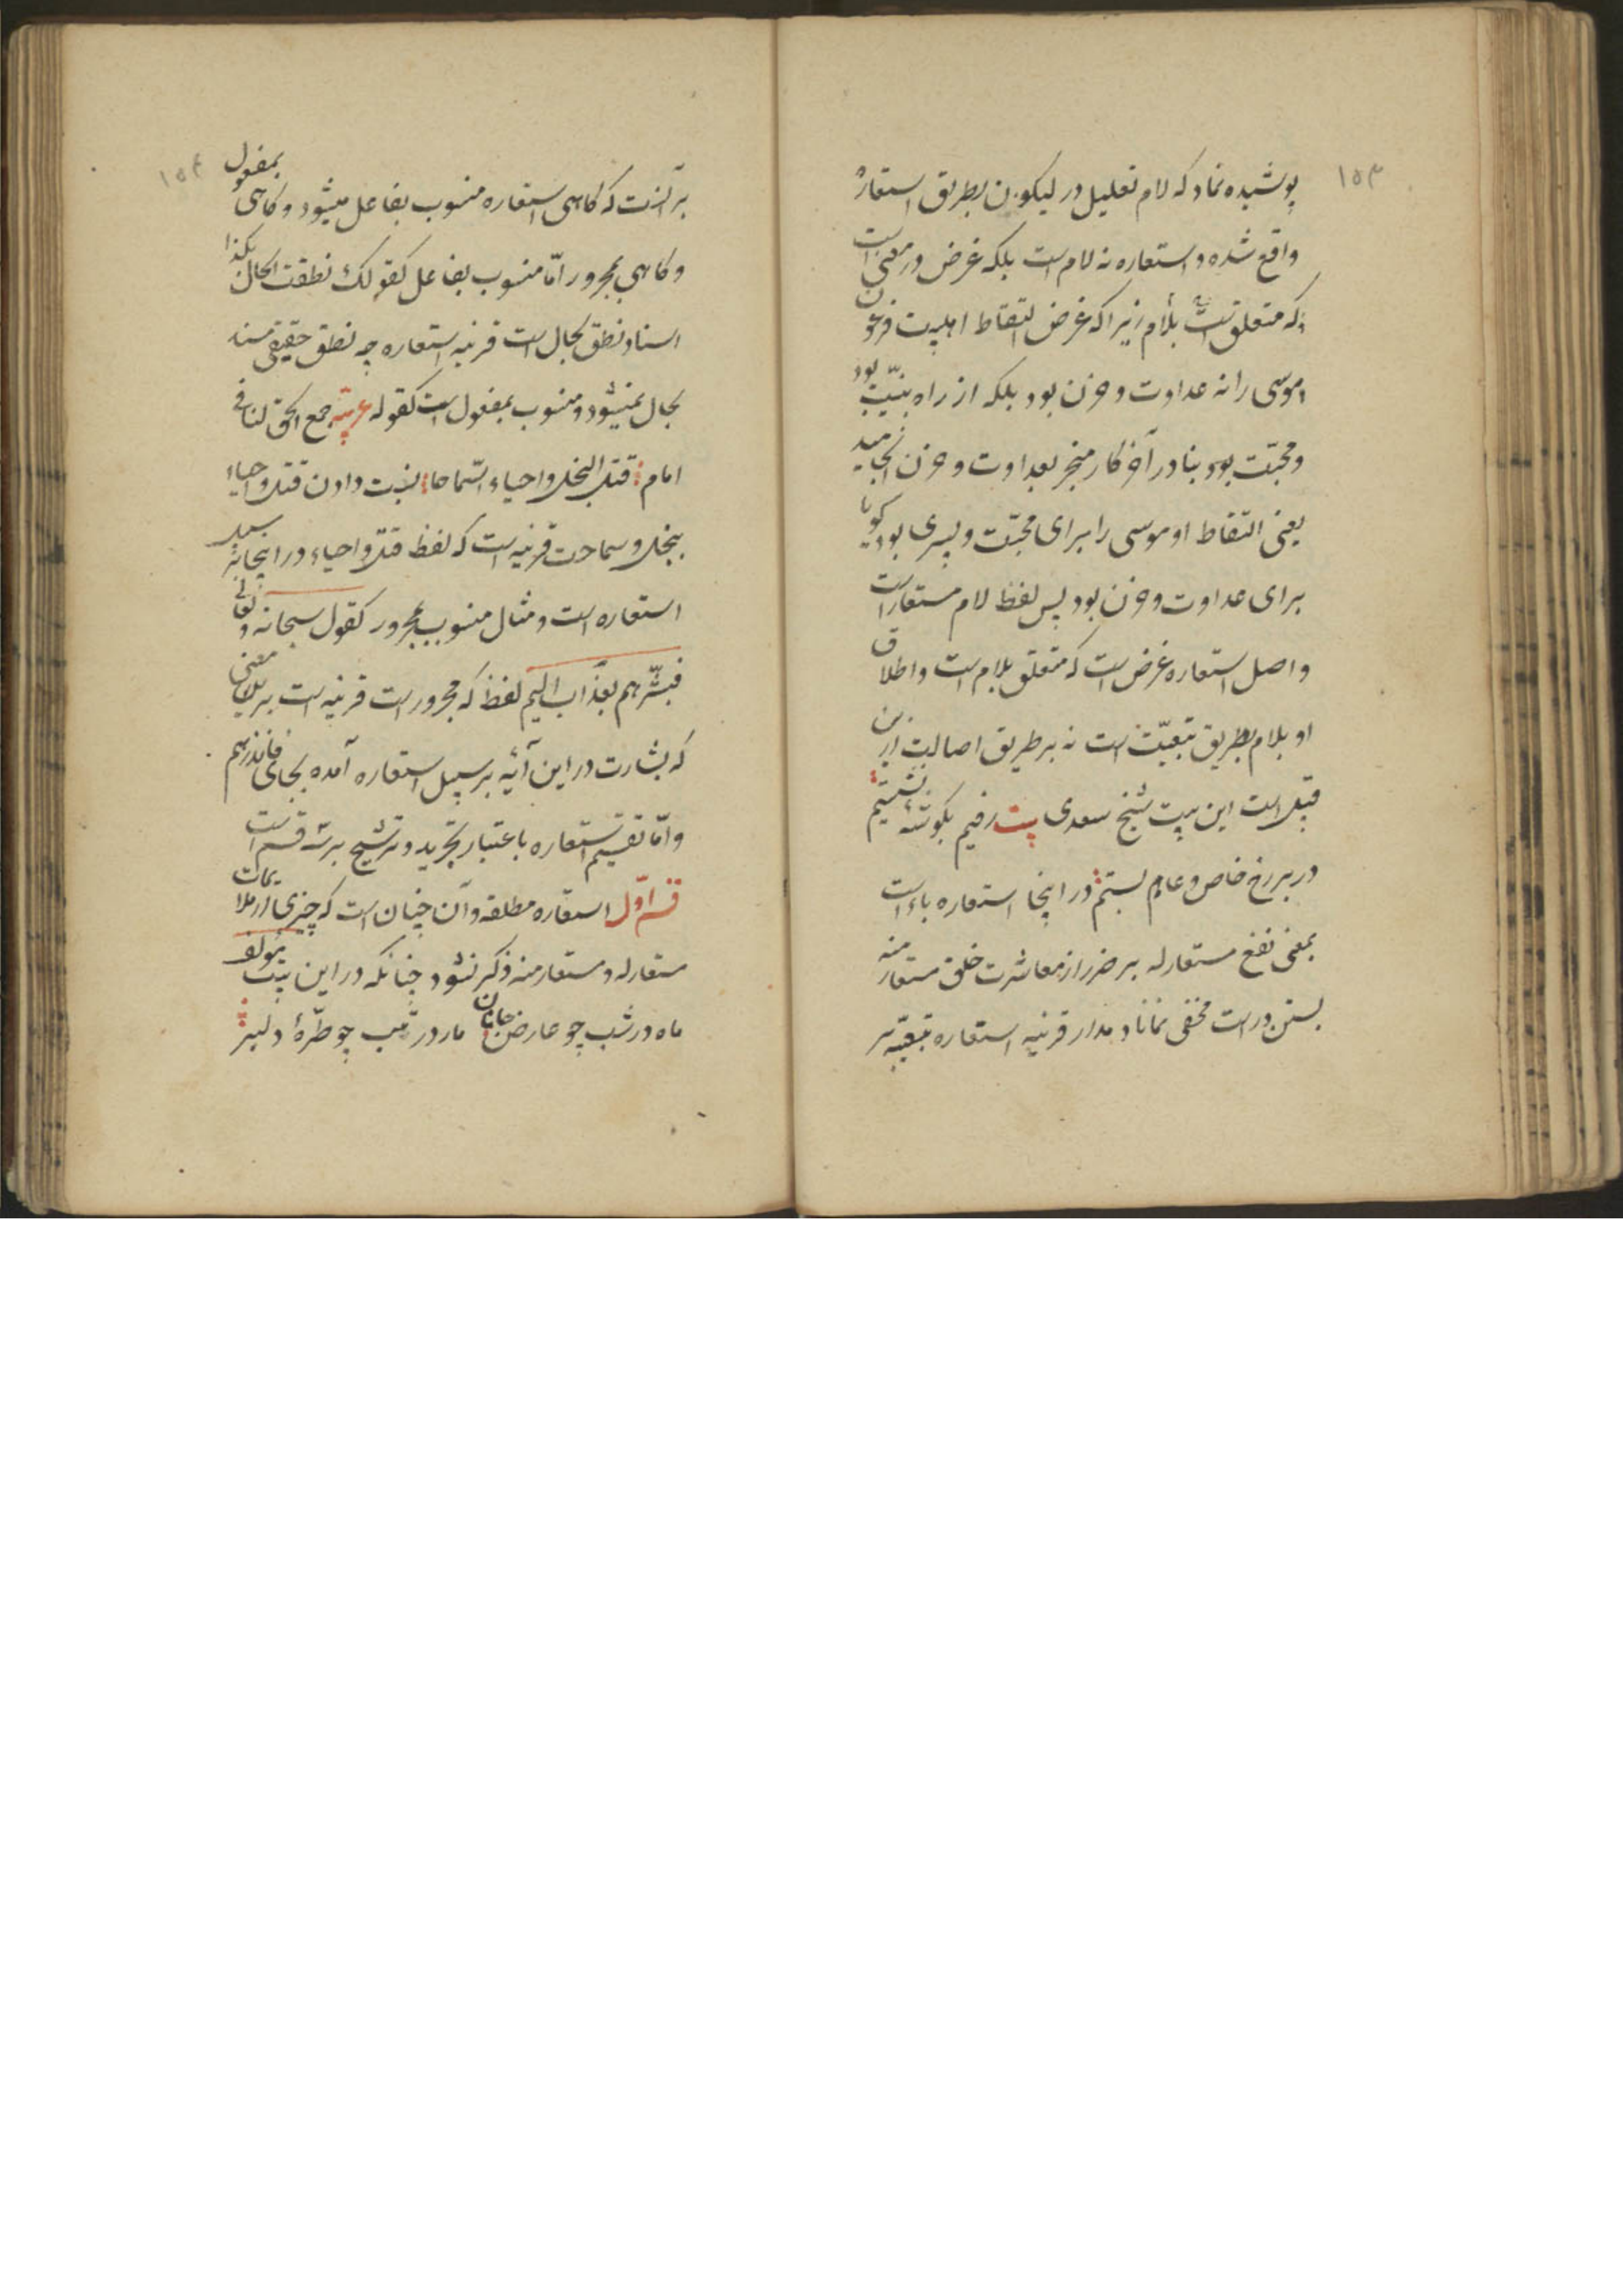 ۱۵۳
پوشیده نماد که لام تعلیل در لیکون بطریق استعاره
واقع شده و استعاره نه لام است بلکه غرض در معنی است
که متعلق است بلام زیرا که غرض التقاط اهلبیت فرعون
موسی را نه عداوت و حزن بود بلکه از راه بنیت بود
و محبّت بود بنا در آخر کار منجر بعداوت و حزن انجامید
یعنی التقاط او موسی را برای محبّت و پسری بود گویا
برای عداوت و حزن بود پس لفظ لام مستعار است
و اصل استعاره غرض است که متعلق بلام است و اطلاق
او بلام بطریق تبعیّت است نه بر طریق اصالت ازین
قبیل است این بیت شیخ سعدی بیت رفتیم بگوشه نشستیم
در بر رخ خاص و عام بستیم در اینجا استعاره باء است
بمعنی نفع مستعار له بر ضرر از معاشرت خلق مستعار منه
بستن در است مخفی نماناد مدار قرینه استعاره تبعیّه بر
۱۵۴
بر آنست که گاهی استعاره منسوب بفاعل میشود و گاهی بمفعول
و گاهی بمجرور امّا منسوب بفاعل کقولک نطقت الحال بکذا
اسناد نطق بحال است قرینه استعاره چه نطق حقیقی مسند
بحال نمیشود و منسوب بمفعول است کقوله عربیّه جمع الحق لنا فی
امام قتل البخل و احیاء السّماحا نسبت دادن قتل و احیاء
ببخل و سماحت قرینه است که لفظ قتل و احیاء در اینجا بر سبیل
استعاره است و مثال منسوب بمجرور کقول سبحانه و تعالی
فبشّرهم بعذاب الیم لفظ که مجرور است قرینه است بر این معنی
که بشارت در این آیه بر سبیل استعاره آمده بجای فانذرهم
و امّا تقسیم استعاره باعتبار تجرید و ترشیح بر سه قسم است
قسم اوّل استعاره مطلقه و آن چنان است که چیزی از ملایمات
مستعار له و مستعار منه ذکر نشود چنانکه در این بیت مؤلف
ماه در شب چو عارض جانان مار در تب چو طرّهٔ دلبر